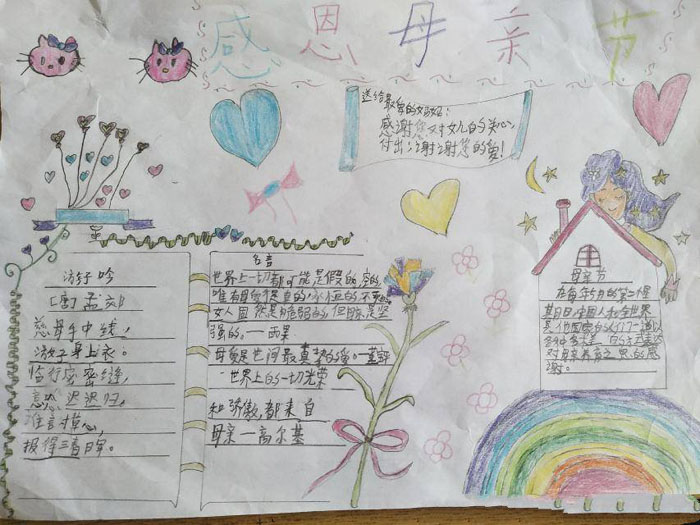 感恩母亲节
送给最爱的妈妈:
感谢您对女儿的关心,
付出,谢谢您的爱!
游子吟
[唐]孟郊
慈母手中线,
游子身上衣。
临行密密缝,
意恐迟迟归,
谁言寸草心,
报得三春晖。
名言
世界上一切都可能是假的,空的,
唯有母爱是真的,永恒的,不灭的。
女人固然是脆弱的,但母亲是坚
强的。—雨果
母爱是世间最真挚的爱。
世界上的一切光荣
和骄傲,都来自
母亲—高尔基
母亲节
在每年5月的第二个星
期日